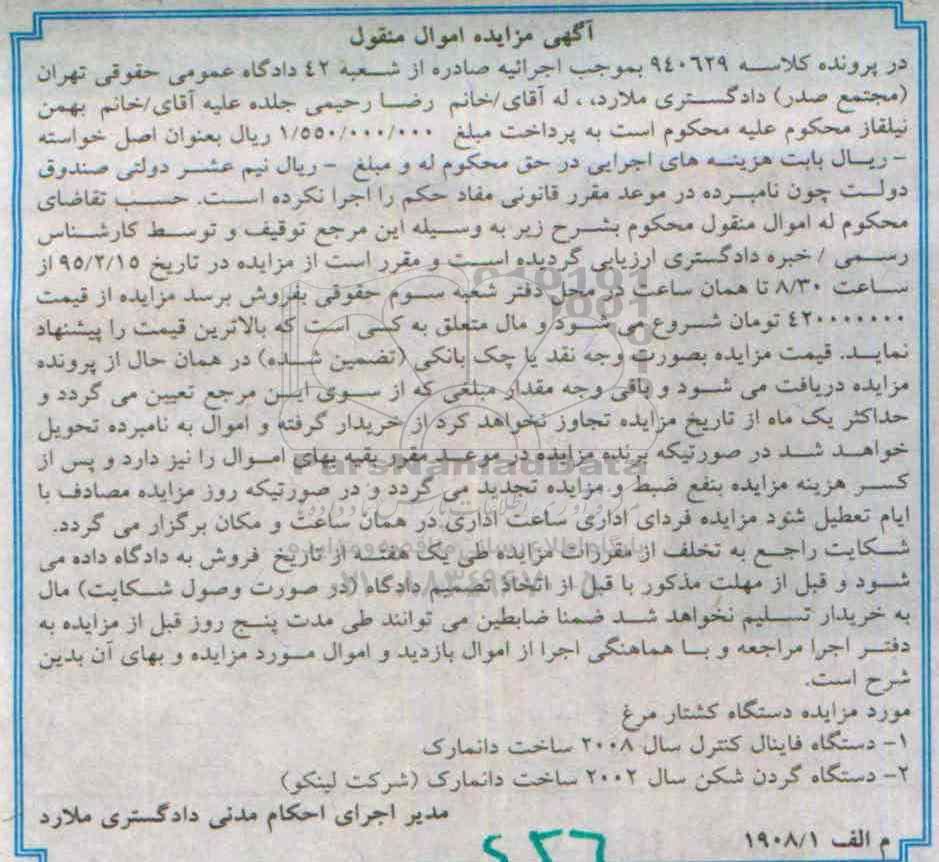 آگهی مزایده اموال منقول
در پرونده کلاسه ۹۴۰۶۲۹ بموجب اجرائیه صادره از شعبه ۴۲ دادگاه عمومی حقوقی تهران
(مجتمع صدر) دادگستری ملارد، ، له آقای/خانم رضا رحیمی جلده علیه آقای/خانم بهمن
نیلقاز محکوم علیه محکوم است به پرداخت مبلغ ۱/۵۵۰/۰۰۰/۰۰۰ ریال بعنوان اصل خواسته
– ریال بابت هزینه های اجرایی در حق محکوم له و مبلغ – ریال نیم عشر دولتی صندوق
دولت چون نامبرده در موعد مقرر قانونی مفاد حکم را اجرا نکرده است. حسب تقاضای
محکوم له اموال منقول محکوم بشرح زیر به وسیله این مرجع توقیف و توسط کارشناس
رسمی / خبره دادگستری ارزیابی گردیده است و مقرر است از مزایده در تاریخ ۹۵/۲/۱۵ از
ساعت ۸/۳۰ تا همان ساعت در محل دفتر شعبه سوم حقوقی بفروش برسد مزایده از قیمت
۴۲۰۰۰۰۰۰۰ تومان شروع می شود و مال متعلق به کسی است که بالاترین قیمت را پیشنهاد
نماید. قیمت مزایده بصورت وجه نقد یا چک بانکی (تضمین شده) در همان حال از پرونده
مزایده دریافت می شود و باقی وجه مقدار مبلغی که از سوی این مرجع تعیین می گردد و
حداکثر یک ماه از تاریخ مزایده تجاوز نخواهد کرد از خریدار گرفته و اموال به نامبرده تحویل
خواهد شد در صورتیکه برنده مزایده در موعد مقرر بقیه بهای اموال را نیز دارد و پس از
کسر هزینه مزایده بنفع ضبط و مزایده تجدید می گردد و در صورتیکه روز مزایده مصادف با
ایام تعطیل شود مزایده فردای اداری ساعت اداری در همان ساعت و مکان برگزار می گردد.
شکایت راجع به تخلف از مقررات مزایده طی یک هفته از تاریخ فروش به دادگاه داده می
شود و قبل از مهلت مذکور با قبل از اتخاذ تصمیم دادگاه (در صورت وصول شکایت) مال
به خریدار تسلیم نخواهد شد ضمنا ضابطین می توانند طی مدت پنج روز قبل از مزایده به
دفتر اجرا مراجعه و با هماهنگی اجرا از اموال بازدید و اموال مورد مزایده و بهای آن بدین
شرح است.
مورد مزایده دستگاه کشتار مرغ
۱- دستگاه فاینال کنترل سال ۲۰۰۸ ساخت دانمارک
۲- دستگاه گردن شکن سال ۲۰۰۲ ساخت دانمارک (شرکت لینکو)
مدیر اجرای احکام مدنی دادگستری ملارد
م الف ۱۹۰۸/۱
ParsNamadData